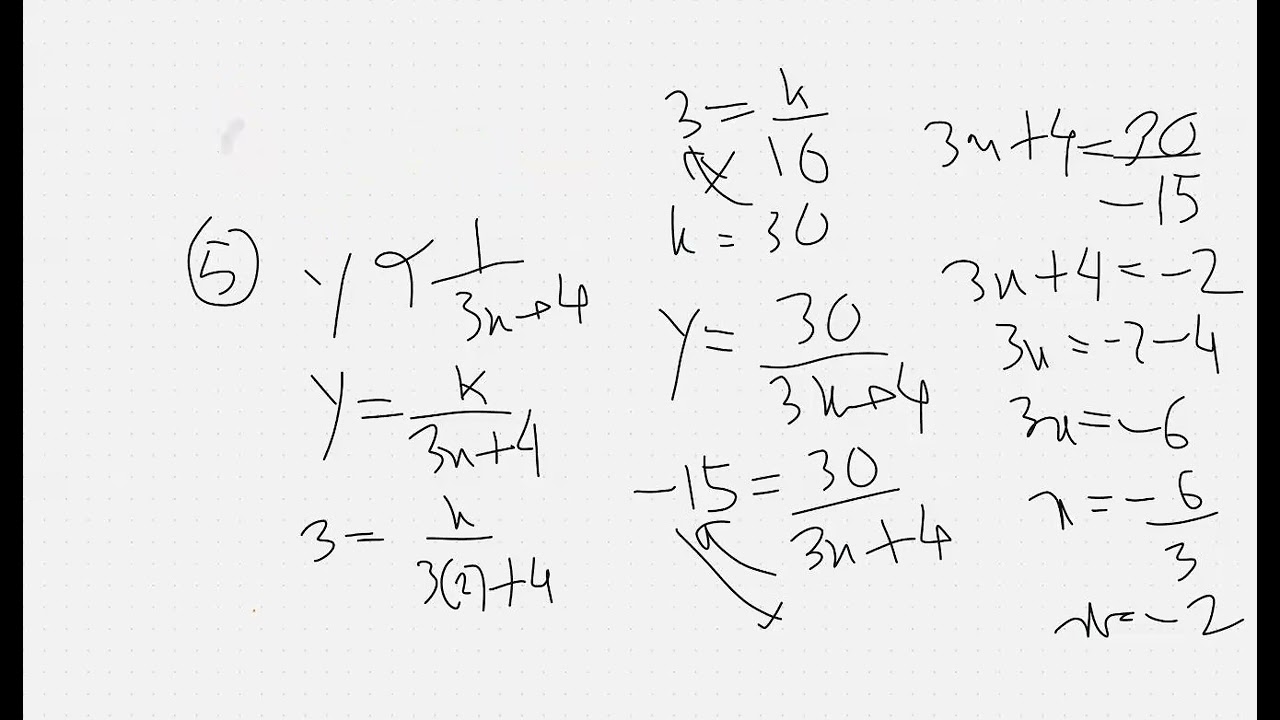 ⑤ y ∝ 1/(3x+4)
y = k/(3x+4)
3 = k/(3(2)+4)
3 = k/10
k = 30
y = 30/(3x+4)
-15 = 30/(3x+4)
3x+4 = 30/-15
3x+4 = -2
3x = -2-4
3x = -6
x = -6/3
x = -2